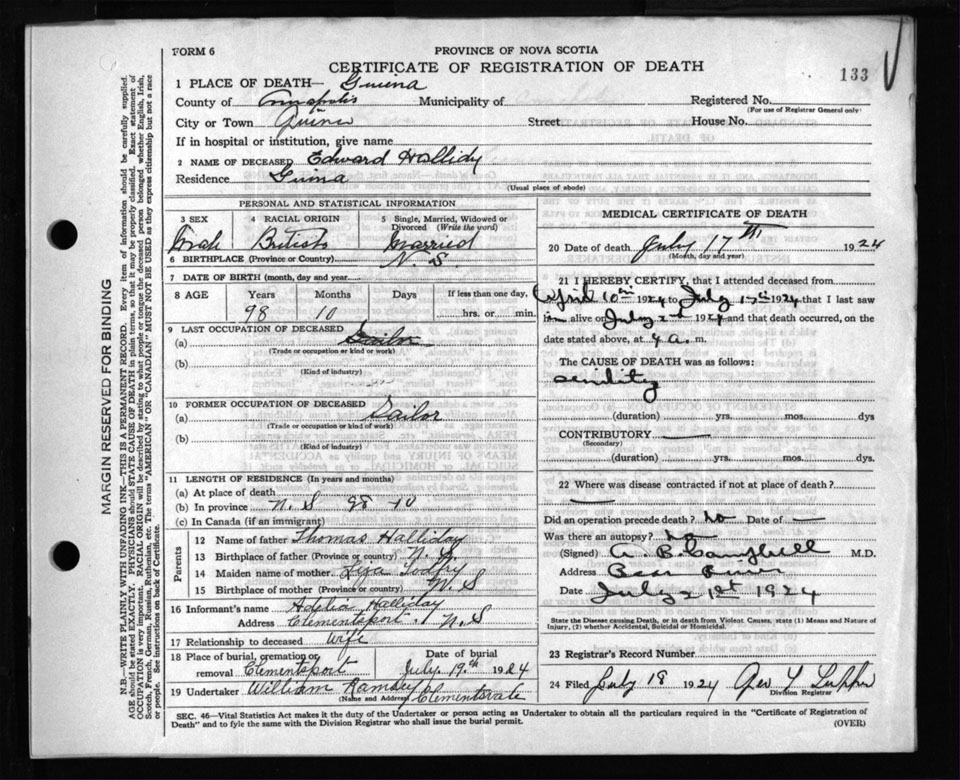 FORM 6
PROVINCE OF NOVA SCOTIA
CERTIFICATE OF REGISTRATION OF DEATH
133
1 PLACE OF DEATH— Guina
County of Annapolis Municipality of Registered No.
(For use of Registrar General only)
City or Town Guina Street House No.
If in hospital or institution, give name
2 NAME OF DECEASED Edward Hallidy
Residence Guina
(Usual place of abode)
PERSONAL AND STATISTICAL INFORMATION
3 SEX 4 RACIAL ORIGIN 5 Single, Married, Widowed or Divorced (Write the word)
Male British Married
6 BIRTHPLACE (Province or Country) N. S.
7 DATE OF BIRTH (month, day and year)
8 AGE Years Months Days If less than one day,
98 10 hrs. or min.
9 LAST OCCUPATION OF DECEASED
(a) Sailor
(Trade or occupation or kind or work)
(b)
(Kind of industry)
10 FORMER OCCUPATION OF DECEASED
(a) Sailor
(Trade or occupation or kind of work)
(b)
(Kind of industry)
11 LENGTH OF RESIDENCE (In years and months)
(a) At place of death
(b) In province N. S 98 - 10
(c) In Canada (if an immigrant)
Parents
12 Name of father Thomas Halliday
13 Birthplace of father (Province or country) N. S.
14 Maiden name of mother
15 Birthplace of mother (Province or country) N. S
16 Informant's name Adelia Halliday
Address Clementsport. N. S
17 Relationship to deceased Wife
18 Place of burial, cremation or removal Clementsport Date of burial July. 19.th 1924
19 Undertaker William Ramsey Clementsvale
(Name and Address)
MEDICAL CERTIFICATE OF DEATH
20 Date of death July 17th 1924
(Month, day and year)
21 I HEREBY CERTIFY, that I attended deceased from
April 10th 1924 to July 17th 1924 that I last saw
him alive on July 2nd 1924 and that death occurred, on
date stated above, at 4 a. m.
The CAUSE OF DEATH was as follows:
senility
(duration) yrs. mos. dys
CONTRIBUTORY
(Secondary)
(duration) yrs. mos. dys.
22 Where was disease contracted if not at place of death?
Did an operation precede death? No Date of —
Was there an autopsy? No
(Signed) A. B. Campbell M.D.
Address Bear River
Date July 21st 1924
State the Disease causing Death, or in death from Violent Causes, state (1) Means and Nature of Injury, (2) whether Accidental, Suicidal or Homicidal.
23 Registrar's Record Number
24 Filed July 18 1924 Geo
Division Registrar
SEC. 46—Vital Statistics Act makes it the duty of the Undertaker or person acting as Undertaker to obtain all the particulars required in the "Certificate of Registration of
Death" and to fyle the same with the Division Registrar who shall issue the burial permit.
(OVER)
MARGIN RESERVED FOR BINDING
N.B.—WRITE PLAINLY WITH UNFADING INK—THIS IS A PERMANENT RECORD. Every item of information should be carefully supplied.
AGE should be stated EXACTLY. PHYSICIANS should STATE CAUSE OF DEATH in plain terms, so that it may be properly classified. Exact statement of
OCCUPATION is very important. RACIAL ORIGIN will be described by stating to what people or tongue the deceased person belonged, whether English, Irish,
Scotch, French, German, Russian, Ruthenian, etc. The terms "AMERICAN" OR "CANADIAN" MUST NOT BE USED as they express citizenship but not a race
or people. See instructions on back of Certificate.